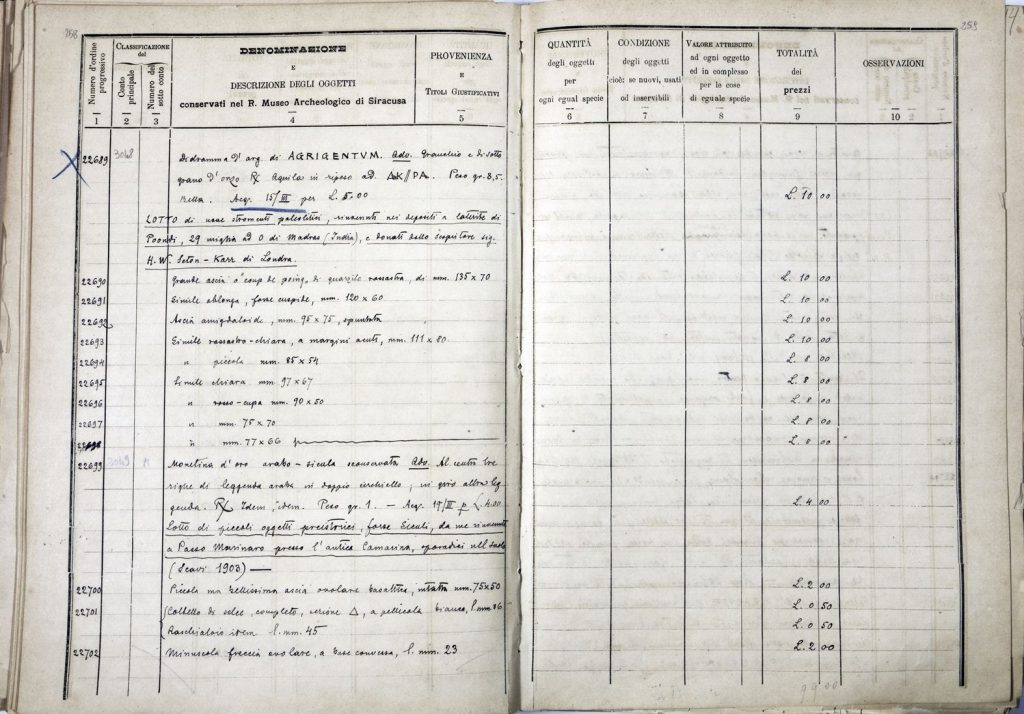 258
CLASSIFICAZIONE
del
Numero d'ordine progressivo
Conto principale
Numero del sotto conto
DENOMINAZIONE
E
DESCRIZIONE DEGLI OGGETTI
conservati nel R. Museo Archeologico di Siracusa
PROVENIENZA
E
TITOLI GIUSTIFICATIVI
1 2 3 4 5
22689 3048 Didramma d'arg. di AGRIGENTVM. Adv. Granchio e di sotto
grano d'orzo Rx Aquila in riposo ad. AK//PA. Peso gr. 8,5.
Bella. Acq. 15/III per L. 5.00
LOTTO di nove stromenti paleolitici, rinvenuti nei depositi a laterite di
Poondi, 29 miglia ad O di Madras (India), e donati dallo scopritore sig.
H. W. Seton-Karr di Londra.
22690 Grande ascia o coup de poing, di quarzite rossastra, di mm. 135 x 70
22691 Simile oblonga, forse cuspide, mm. 120 x 60
22692 Ascia amigdaloide, mm. 95 x 75, spuntata
22693 Simile rossastro-chiara, a margini acuti, mm. 111 x 80
22694 " piccola mm. 85 x 54
22695 Simile chiara mm. 97 x 67
22696 " rosso-cupa mm. 90 x 50
22697 " mm. 75 x 70
22698 " mm. 77 x 66
22699 Monetina d'oro arabo-sicula sconservata Adv. Al centro tre
righe di leggenda araba in doppio cerchiello, in giro altra leg-
genda. Rx Idem, idem. Peso gr. 1. — Acq. 19/III p L. 4.00
Lotto di piccoli oggetti preistorici, forse Siculi, da me rinvenuti
a Passo Marinaro presso l'antica Camarina, sporadici nell
(Scavi 1903) —
22700 Piccola ma bellissima ascia ovolare basaltica, intatta mm. 75 x 50
22701 Coltello di selce, completo, sezione △, a pellicola bianca, l. mm. 86
Raschiatoio idem l. mm. 45
22702 Minuscola freccia ovolare, a base convessa, l. mm. 23
259
QUANTITÀ
degli oggetti
per
ogni egual specie
CONDIZIONE
degli oggetti
cioè: se nuovi, usati
od inservibili
VALORE ATTRIBUITO
ad ogni oggetto
ed in complesso
per le cose
di eguale specie
TOTALITÀ
dei
prezzi
OSSERVAZIONI
6 7 8 9 10
L. 10 00
L. 10 00
L. 10 00
L. 10 00
L. 10 00
L. 8 00
L. 8 00
L. 8 00
L. 8 00
L. 8 00
L. 4 00
L. 2 00
L. 0 50
L. 0 50
L. 2 00